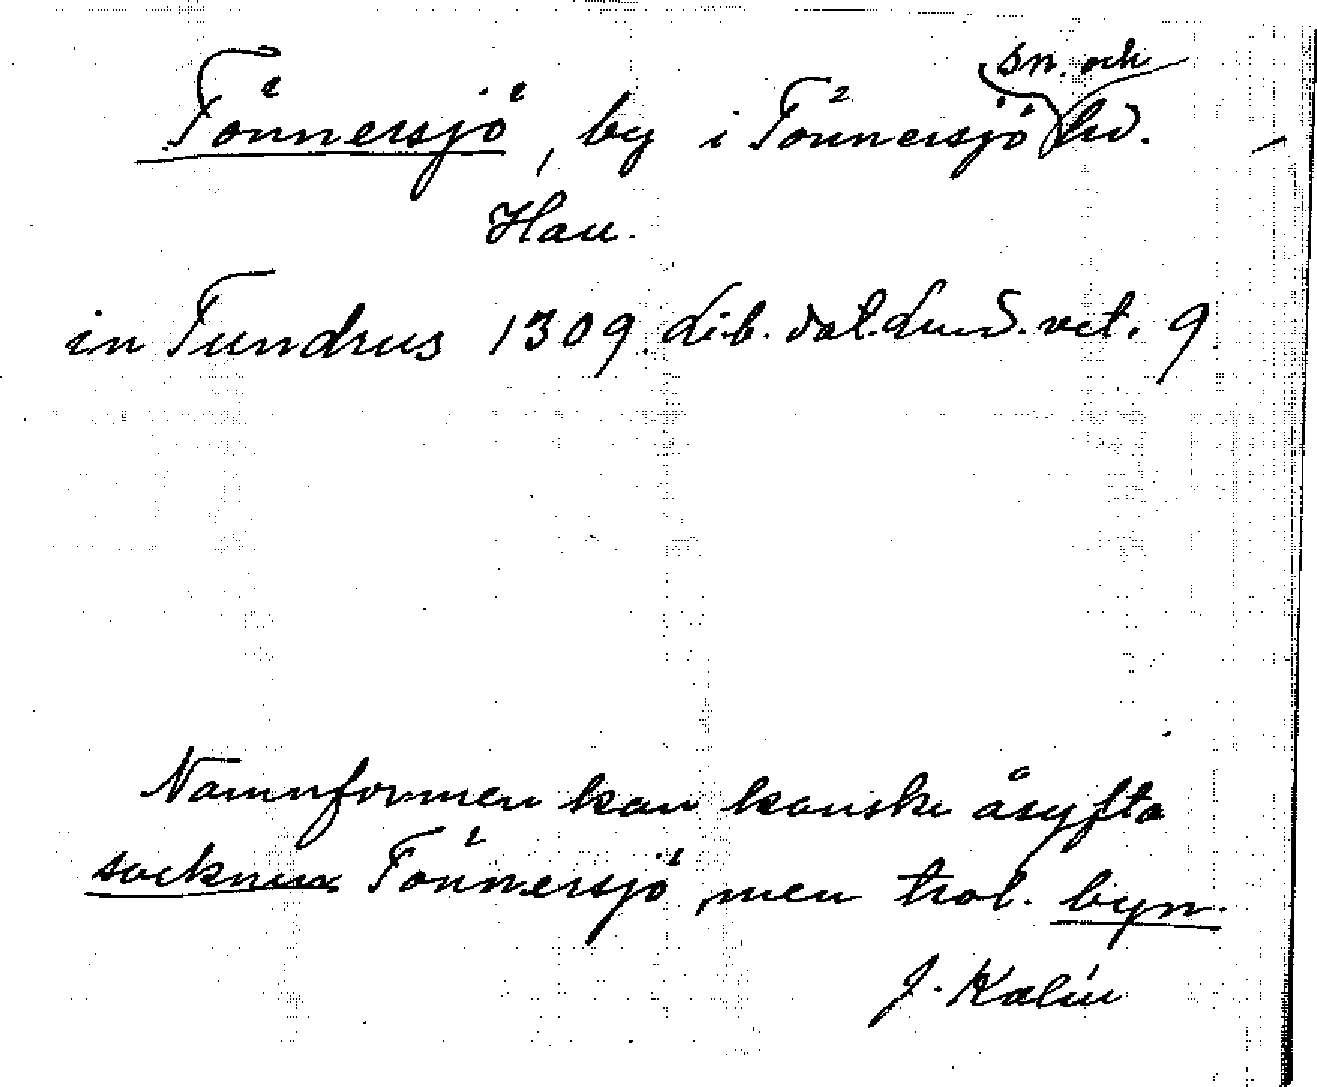 Tönnersjö, by i Tönnersjö sn. och hd.
Hall.
in Tundrus 1309. Lib. dat. Lund. vet. 9.
Namnformen kan kanske åsyfta
socknen Tönnersjö, men trol. byn.
J. Kalén